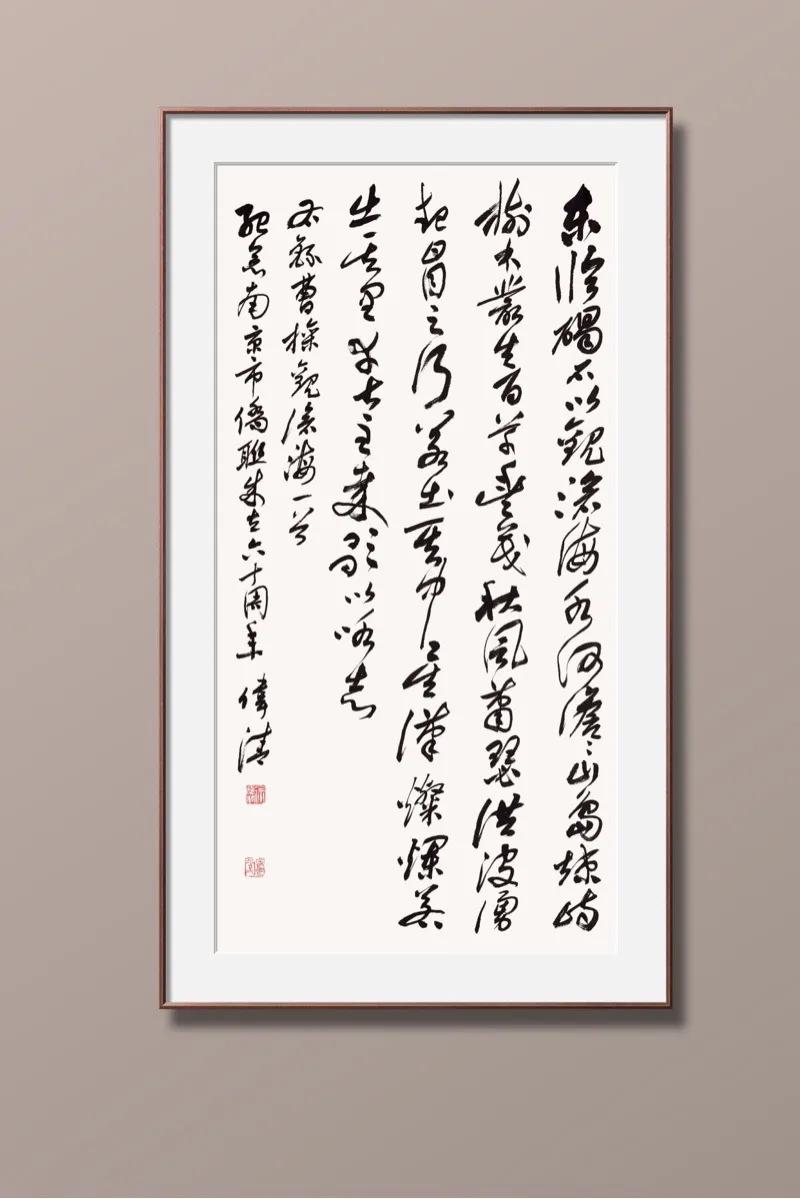 東臨碣石以觀滄海水何澹々山島竦峙
樹木叢生百草豐茂秋風蕭瑟洪波湧
起日月之行若出其中星漢燦爛若
出其里幸甚至哉歌以咏志
右錄曹操觀滄海一首
紀念南京市僑聯成立六十周年 偉清